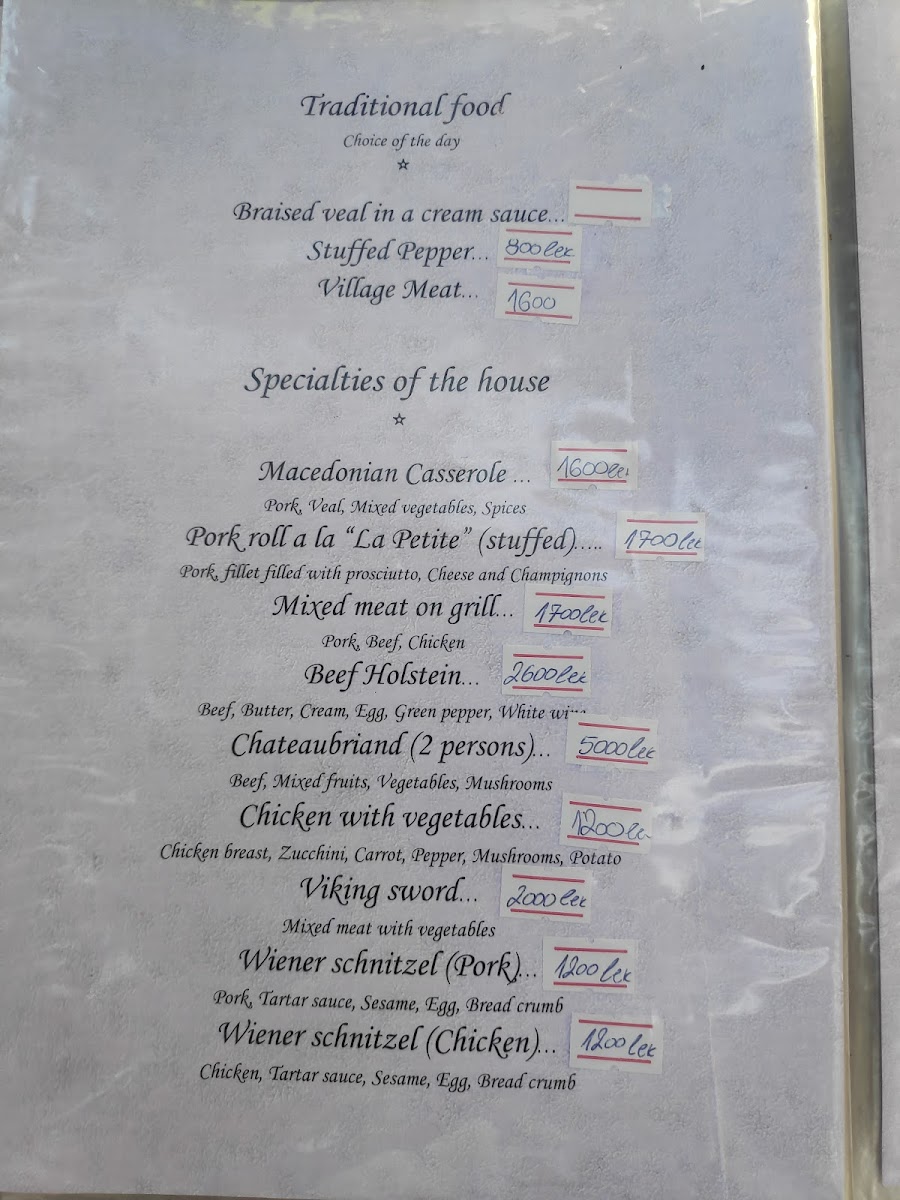 Traditional food
Choice of the day
Braised veal in a cream sauce...
Stuffed Pepper... 800lek
Village Meat... 1600
Specialties of the house
Macedonian Casserole ... 1600lek
Pork, Veal, Mixed vegetables, Spices
Pork roll a la “La Petite” (stuffed)..... 1700lek
Pork, fillet filled with prosciutto, Cheese and Champignons
Mixed meat on grill... 1700lek
Pork, Beef, Chicken
Beef Holstein... 2600lek
Beef, Butter, Cream, Egg, Green pepper, White wine
Chateaubriand (2 persons)... 5000lek
Beef, Mixed fruits, Vegetables, Mushrooms
Chicken with vegetables... 1200le
Chicken breast, Zucchini, Carrot, Pepper, Mushrooms, Potato
Viking sword... 2000lek
Mixed meat with vegetables
Wiener schnitzel (Pork)... 1200lek
Pork, Tartar sauce, Sesame, Egg, Bread crumb
Wiener schnitzel (Chicken)... 1200lek
Chicken, Tartar sauce, Sesame, Egg, Bread crumb